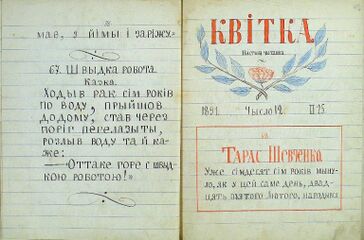 має, я йімы і заріжу.
67. Швыдка робота.
Казка.
Ходыв рак сім років
по воду, прыйшов
додому, став через
поріг перелазыты,
розлыв воду та й ка-
же:
— Оттаке горе с швыд-
кою роботою!»
КВІТКА
Постом чытанка.
1891. Чысло 12. II-25.
68.
Тарас Шевченко
Уже сімдесят сім років мыну-
ло, як у цей саме день, двад-
цять пятого Лютого, народывся